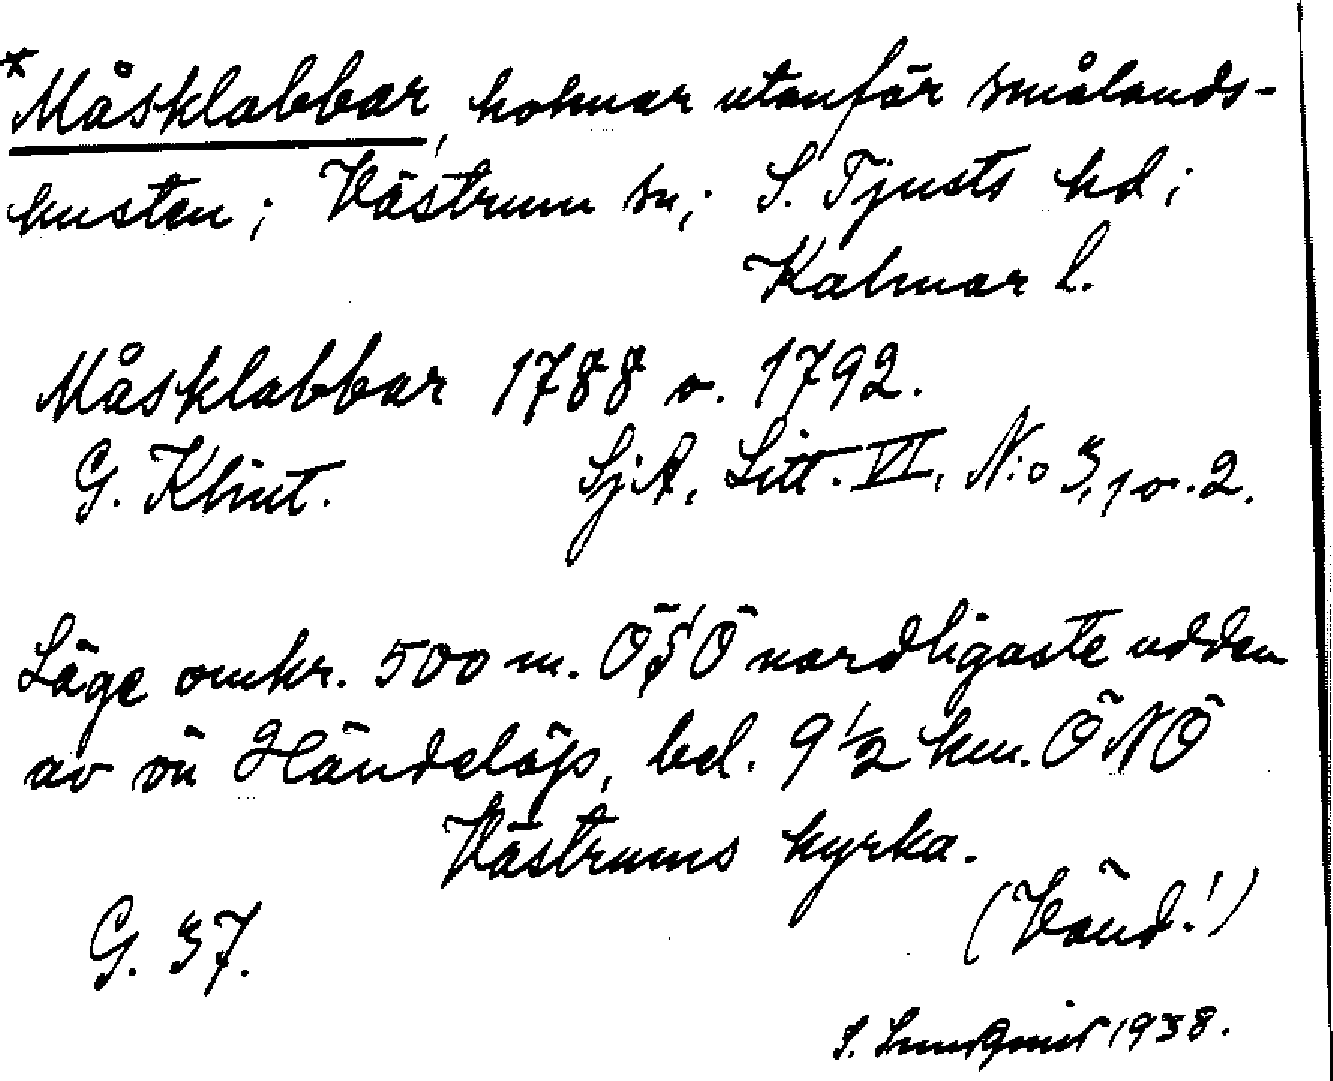 *Måsklabbar, holmar utanför smålands-
kusten; Västrum sn; S. Tjusts hd;
Kalmar l.
Måsklabbar 1788 o. 1792.
G. Klint. SjA, Litt. VI, N:o 3, 1 o. 2.
Läge omkr. 500 m. ÖSÖ nordligaste udden
av ön Händelöp, bel. 9 1/2 km. ÖNÖ
Västrums kyrka.
G. 37. (Vänd!)
S. 1938.